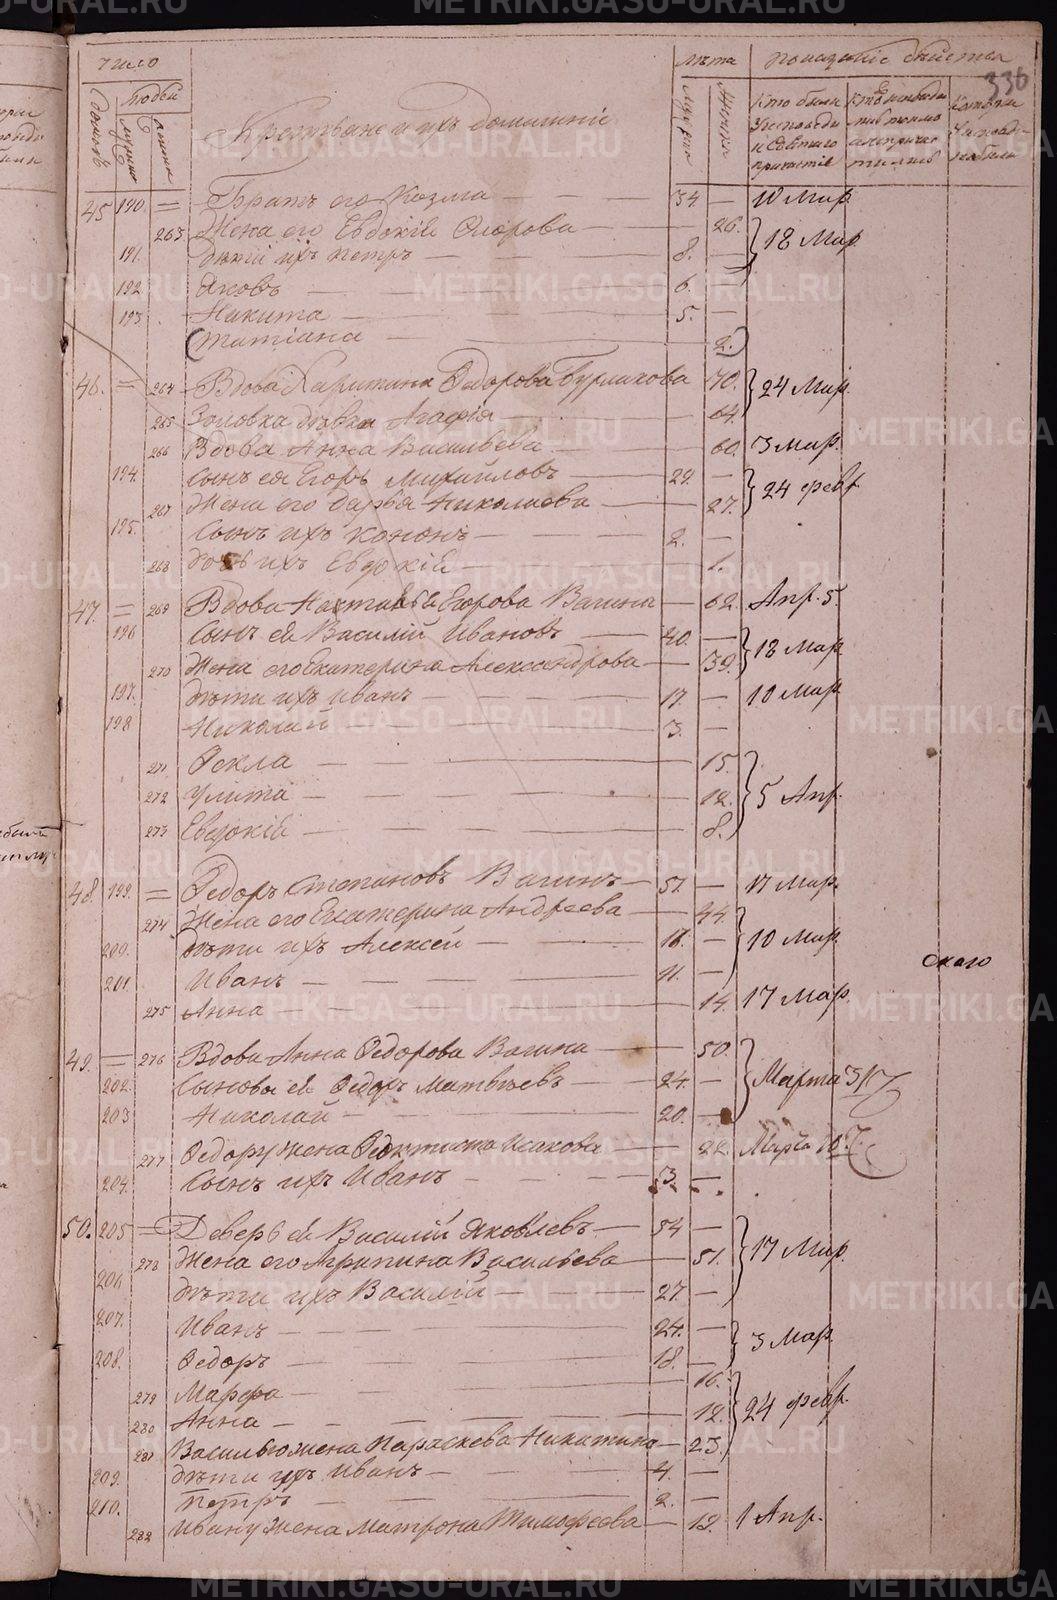 число
лѣта
показаніе бытья
336
домовъ
людей
мужска
женска
Крестьяне и ихъ домашніе
мужска
женска
Кто были у исповѣди и святаго причастія
45 190. = Братъ его Козма — 34. — 10 Мар.
263 Жена его Евдокія — 26. } 18 Мар.
191. дѣти ихъ Петръ — 8. —
192 Яковъ — 6. —
193 Никита — 5. —
(Татіана — 2.)
46. = 264 Вдова Харитина Ѳедорова Бурлакова 70. } 24 Мар.
265 Золовка дѣвка Агафія — 64.
266 Вдова Анна Васильева — 60. 3 Мар.
194. Сынъ ея Егоръ Михайловъ — 29. — } 24 февр.
267 Жена его Дарья Николаева — 27.
195. Сынъ ихъ Кононъ — 2. —
268 Дочь ихъ Евдокія — 1.
47. = 269 Вдова Настасья Егорова Вагина — 62. Апр. 5.
196 Сынъ ея Василій Ивановъ — 40. — } 18 Мар.
270 Жена его Екатерина Александрова — 39.
197. дѣти ихъ Иванъ — 17. — 10 Мар.
198 Николай — 3. —
271 Ѳекла — 15. } 5 Апр.
272 Улита — 12.
273 Евдокія — 8.
48. 199. = Ѳедоръ Степановъ Вагинъ — 51. — 17 Мар.
274 Жена его Екатерина Андреева — 44. } 10 Мар.
200. дѣти ихъ Алексей — 18. —
201. Иванъ — 11. —
около
275 Анна — 14. 17 Мар.
49. = 276 Вдова Анна Ѳедорова Вагина — 50. } Марта 3/17
202. Сыновья ея Ѳедоръ Матвѣевъ — 24. —
203 Николай — 20. —
277 Ѳедору жена Исакова — 22. Марта 10.
204. Сынъ ихъ Иванъ — 3. —
50. 205 = Деверь ея Василій Яковлевъ — 54 — } 17 Мар.
278 Жена его Агрипина Васильева — 51.
206 дѣти ихъ Василій — 27. —
207. Иванъ — 24. — } 3 Мар.
208. Ѳедоръ — 18. —
279 Марфа — 16. } 24 февр.
280 Анна — 12.
281 Василью жена Параскева Никитина — 23.
209. дѣти ихъ Иванъ — 4. —
210. Петръ — 2. —
282 Ивану жена Матрона Тимофеева — 19. 1 Апр.
METRIKI.GASO-URAL.RU